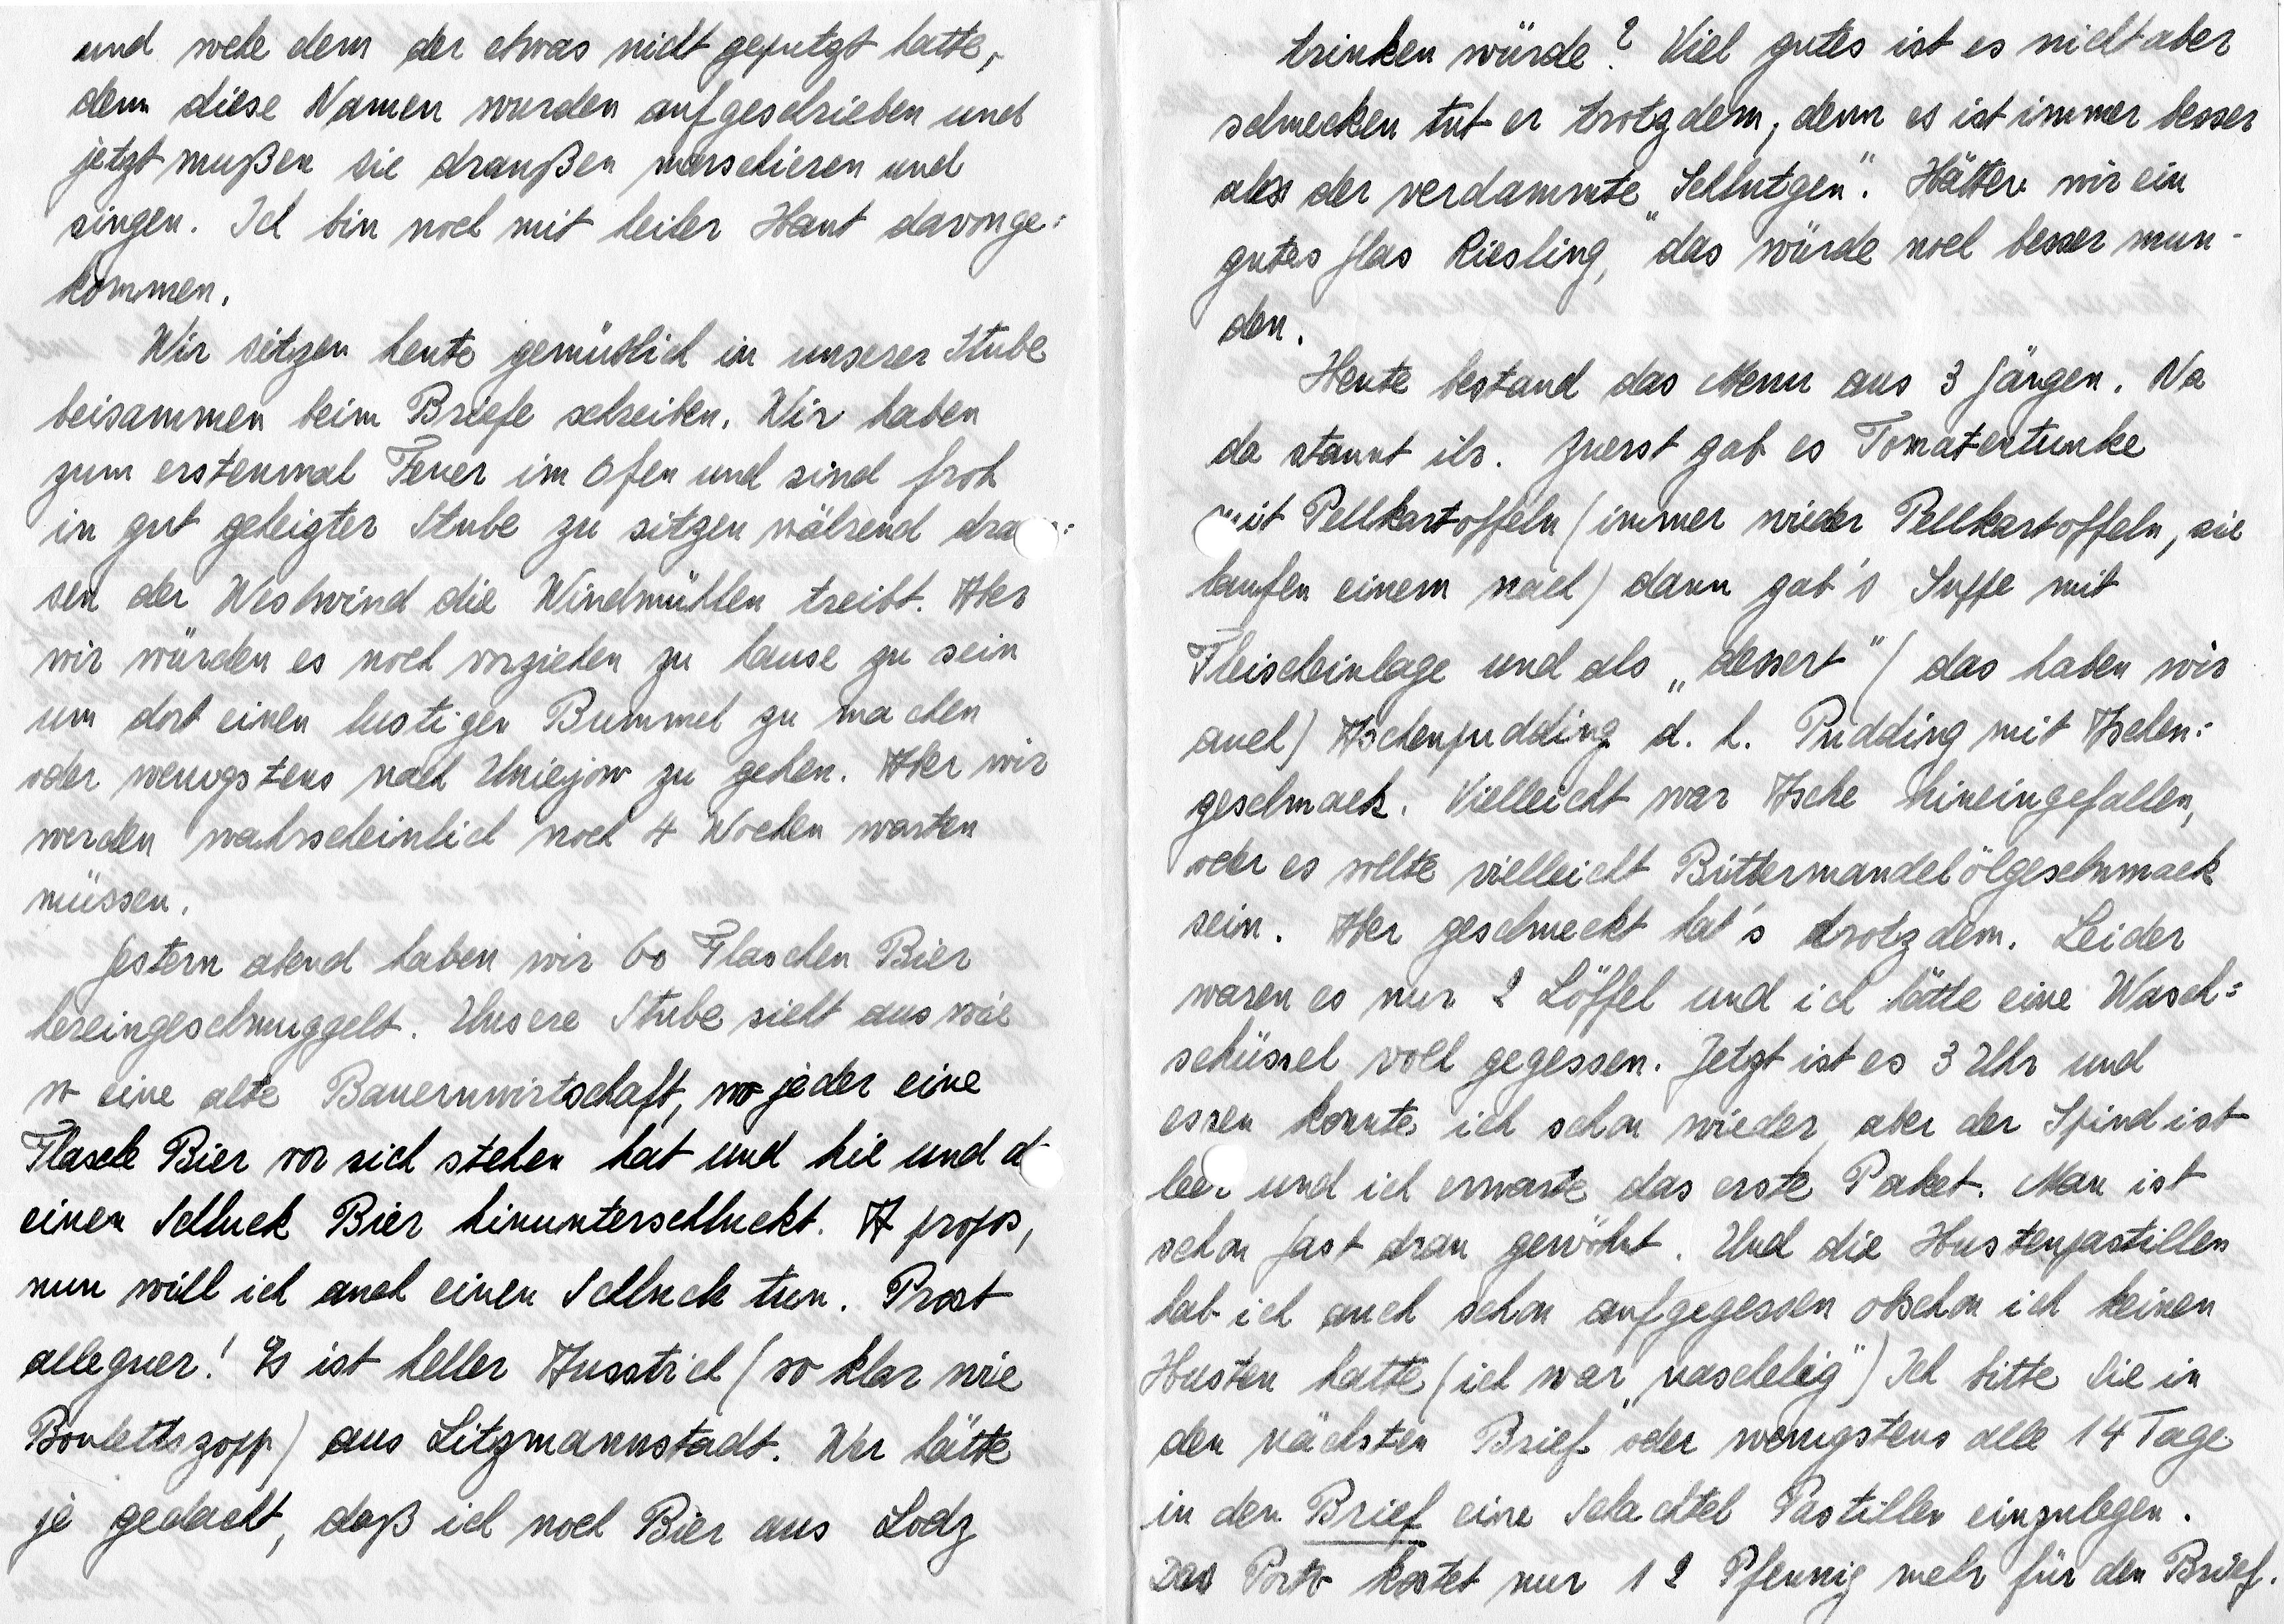 und wehe dem der etwas nicht geputzt hatte,
denn diese Namen wurden aufgeschrieben und
jetzt mußen sie draußen marschieren und
singen. Ich bin noch mit heiler Haut davonge:
kommen.
Wir sitzen heute gemütlich in unserer Stube
beisammen beim Briefe schreiben. Wir haben
zum erstenmal Feuer im Ofen und sind froh
in gut geheizter Stube zu sitzen während drau:
sen der Westwind die Windmühlen treibt. Aber
wir würden es noch vorziehen zu hause zu sein
um dort einen lustigen Bummel zu machen
oder wenigstens nach Uniejow zu gehen. Aber wir
werden wahrscheinlich noch 4 Wochen warten
müssen.
Gestern abend haben wir 60 Flaschen Bier
hereingeschmuggelt. Unsere Stube sieht aus wie
so eine alte Bauernwirtschaft, wo jeder eine
Flasche Bier vor sich stehen hat und hie und d
einen Schluck Bier hinunterschluckt. A propos,
nun will ich auch einen Schluck tun. Prost
alleguer! Es ist heller Ausstich (so klar wie
Boulettszopp) aus Litzmannstadt. Wer hätte
je gedacht, daß ich noch Bier aus Lodz
trinken würde? Viel gutes ist es nicht aber
schmecken tut er trotzdem, denn es ist immer besser
als der verdammte „Schlutgen“. Hätten wir ein
gutes Glas Riesling, das würde noch besser mun-
den.
Heute bestand das Menu aus 3 Gängen. Na
da staunt ihr. Zuerst gab es Tomatentunke
mit Pellkartoffeln (immer wieder Pellkartoffeln, sie
laufen einem nach) dann gab's Suppe mit
Fleischeinlage und als „dessert“ (das haben wir
auch) Aschenpudding d. h. Pudding mit Aschen:
geschmack. Vielleicht war Asche hineingefallen,
oder es sollte vielleicht Bittermandelölgeschmack
sein. Aber geschmeckt hat's trotzdem. Leider
waren es nur 2 Löffel und ich hätte eine Wasch:
schüssel voll gegessen. Jetzt ist es 3 Uhr und
essen konnte ich schon wieder, aber der Spind ist
leer und ich erwarte das erste Paket. Man ist
schon fast dran gewöhnt. Und die Hustenpastillen
hab ich auch schon aufgegessen obschon ich keinen
Husten hatte (ich war „naschelig“) Ich bitte Sie in
den nächsten Brief oder wenigstens alle 14 Tage
in den Brief eine Schachtel Pastillen einzulegen.
Das Porto kostet nur 12 Pfennig mehr für den Brief.